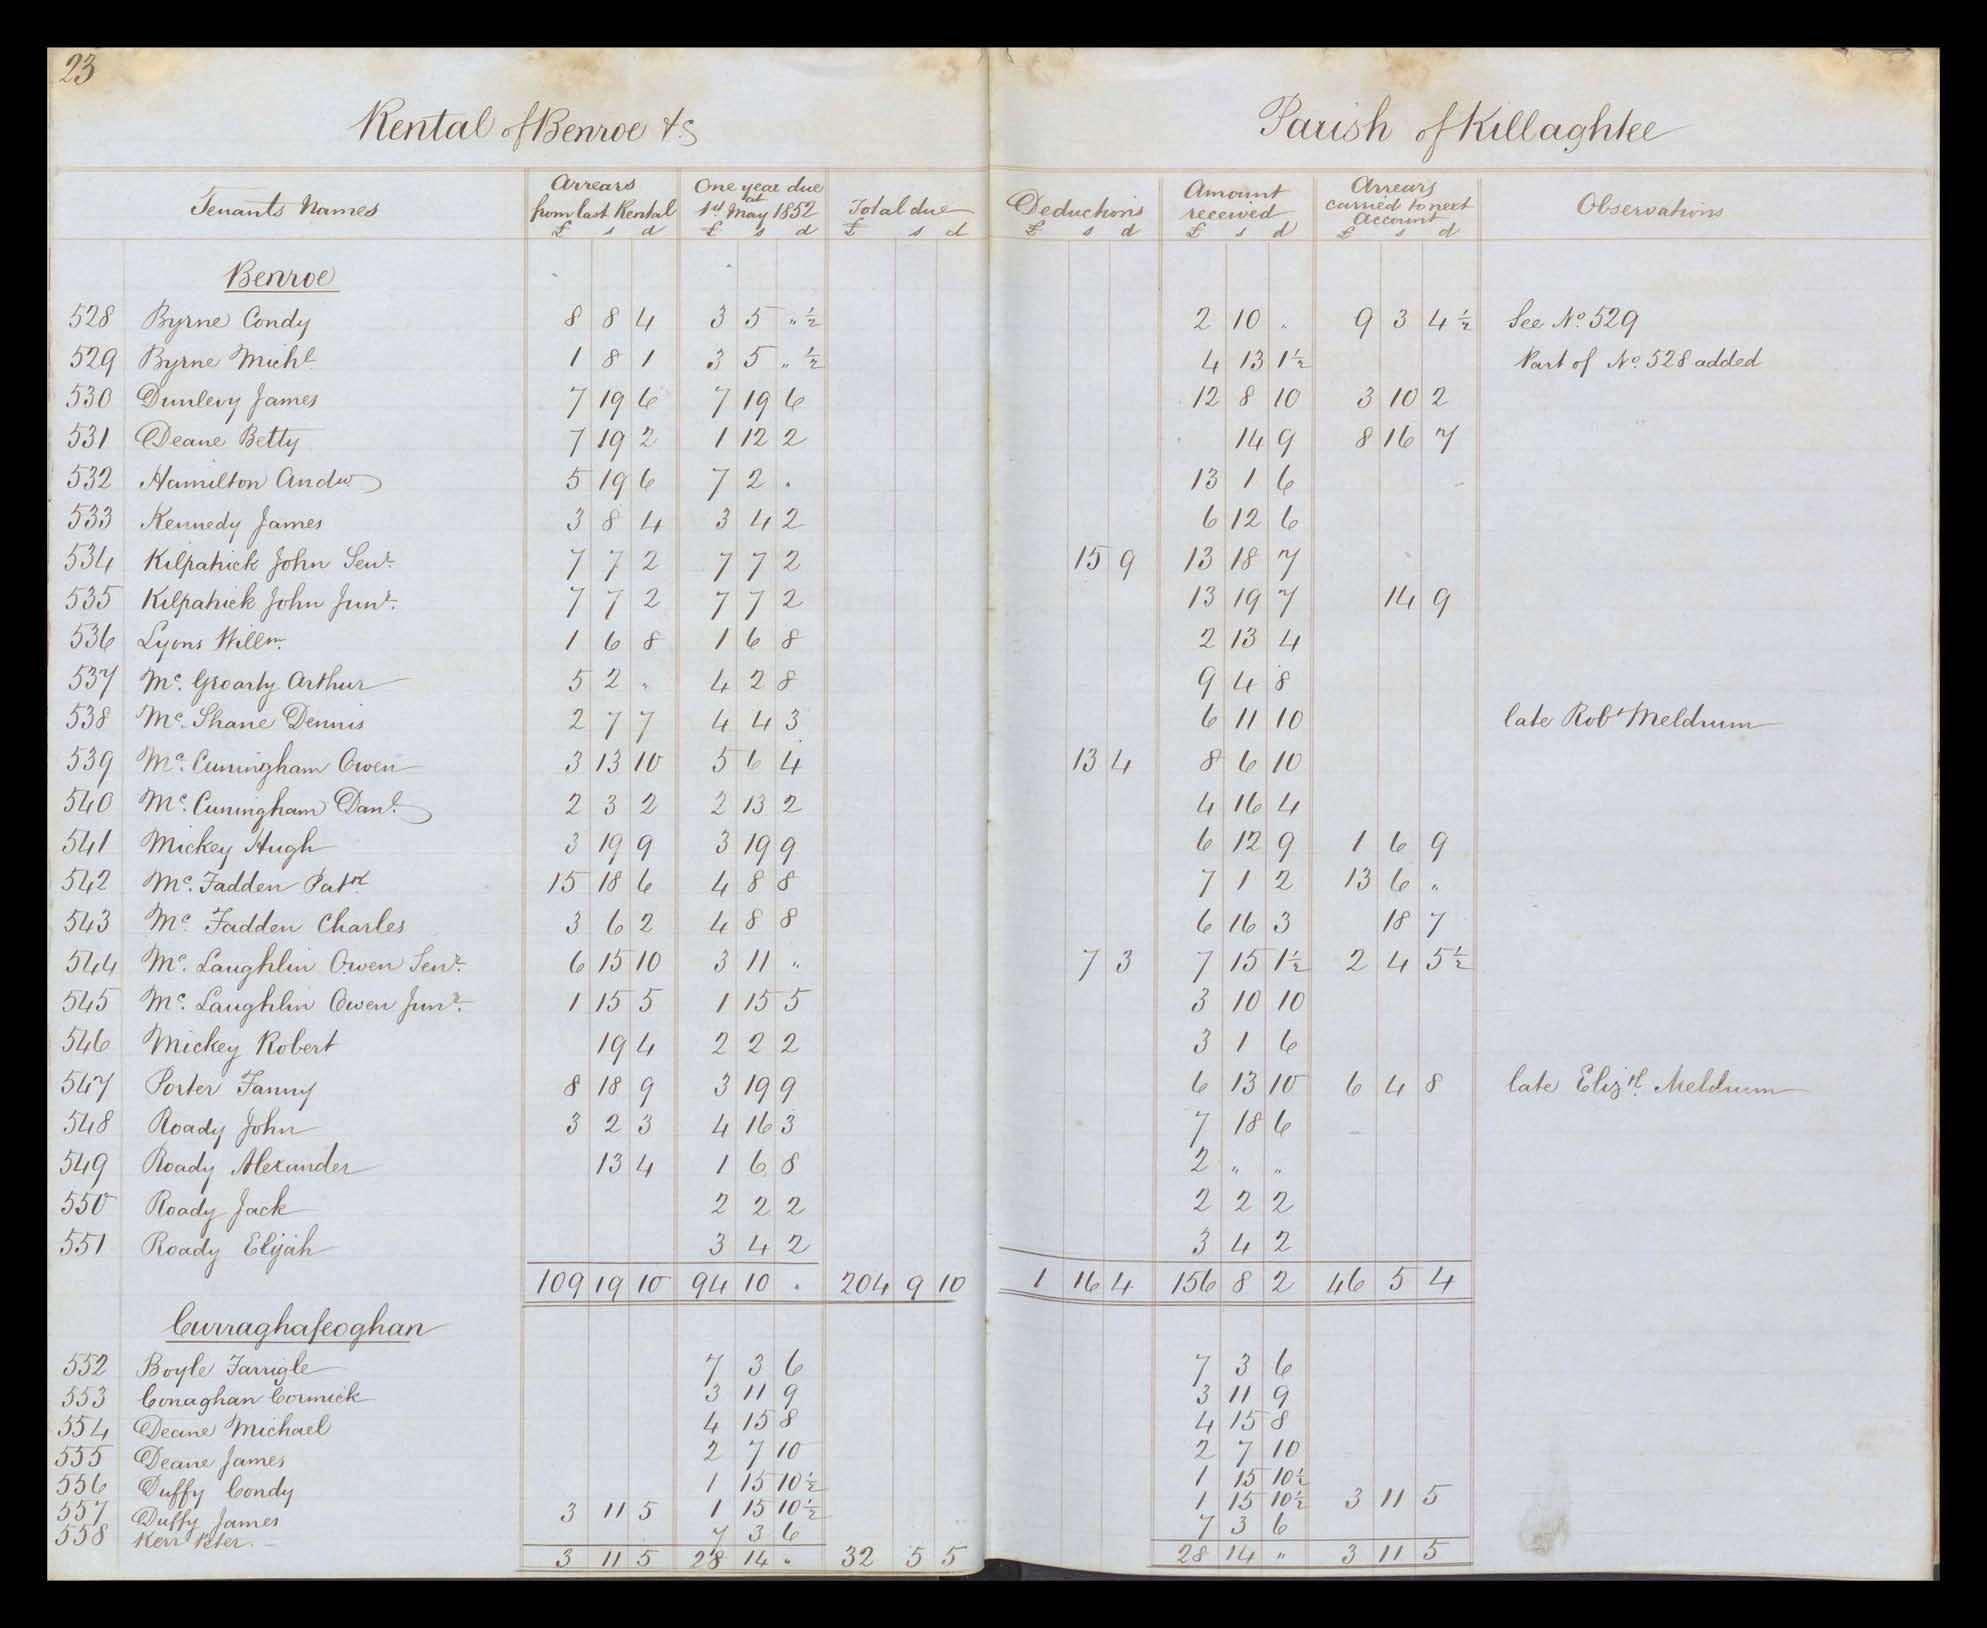 23
Rental of Benroe &c
Parish of Killaghtee
Tenants Names | Arrears from last Rental £ s d | One year due at 1st May 1852 £ s d | Total due £ s d | Deductions £ s d | Amount received £ s d | Arrears carried to next Account £ s d | Observations
Benroe
528 Byrne Condy 8 8 4 3 5 " ½ 2 10 " 9 3 4 ½ See No. 529
529 Byrne Michl. 1 8 1 3 5 " ½ 4 13 1 ½ Part of No. 528 added
530 Dunlevy James 7 19 6 7 19 6 12 8 10 3 10 2
531 Deane Betty 7 19 2 1 12 2 14 9 8 16 7
532 Hamilton Andw. 5 19 6 7 2 . 13 1 6
533 Kennedy James 3 8 4 3 4 2 6 12 6
534 Kilpatrick John Senr. 7 7 2 7 7 2 15 9 13 18 7
535 Kilpatrick John Junr. 7 7 2 7 7 2 13 19 7 14 9
536 Lyons Willm. 1 6 8 1 6 8 2 13 4
537 Mc. Groarty Arthur 5 2 " 4 2 8 9 4 8
538 Mc. Shane Dennis 2 7 7 4 4 3 6 11 10 late Robt Meldrum
539 Mc. Cuningham Owen 3 13 10 5 6 4 13 4 8 6 10
540 Mc. Cuningham Danl. 2 3 2 2 13 2 4 16 4
541 Mickey Hugh 3 19 9 3 19 9 6 12 9 1 6 9
542 Mc. Fadden Patrk. 15 18 6 4 8 8 7 1 2 13 6 "
543 Mc Fadden Charles 3 6 2 4 8 8 6 16 3 18 7
544 Mc. Laughlin Owen Senr. 6 15 10 3 11 " 7 3 7 15 1 ½ 2 4 5 ½
545 Mc. Laughlin Owen Junr. 1 15 5 1 15 5 3 10 10
546 Mickey Robert 19 4 2 2 2 3 1 6
547 Porter Fanny 8 18 9 3 19 9 6 13 10 6 4 8 late Elizth. Meldrum
548 Roady John 3 2 3 4 16 3 7 18 6
549 Roady Alexander 13 4 1 6 8 2 " "
550 Roady Jack 2 2 2 2 2 2
551 Roady Elijah 3 4 2 3 4 2
109 19 10 94 10 . 204 9 10 1 16 4 156 8 2 46 5 4
Curraghafeoghan
552 Boyle Farrigle 7 3 6 7 3 6
553 Conaghan Cormick 3 11 9 3 11 9
554 Deane Michael 4 15 8 4 15 8
555 Deane James 2 7 10 2 7 10
556 Duffy Condy 1 15 10 ½ 1 15 10 ½
557 Duffy James 3 11 5 1 15 10 ½ 1 15 10 ½ 3 11 5
558 Kerr Peter. 7 3 6 7 3 6
3 11 5 28 14 . 32 5 5 28 14 " 3 11 5